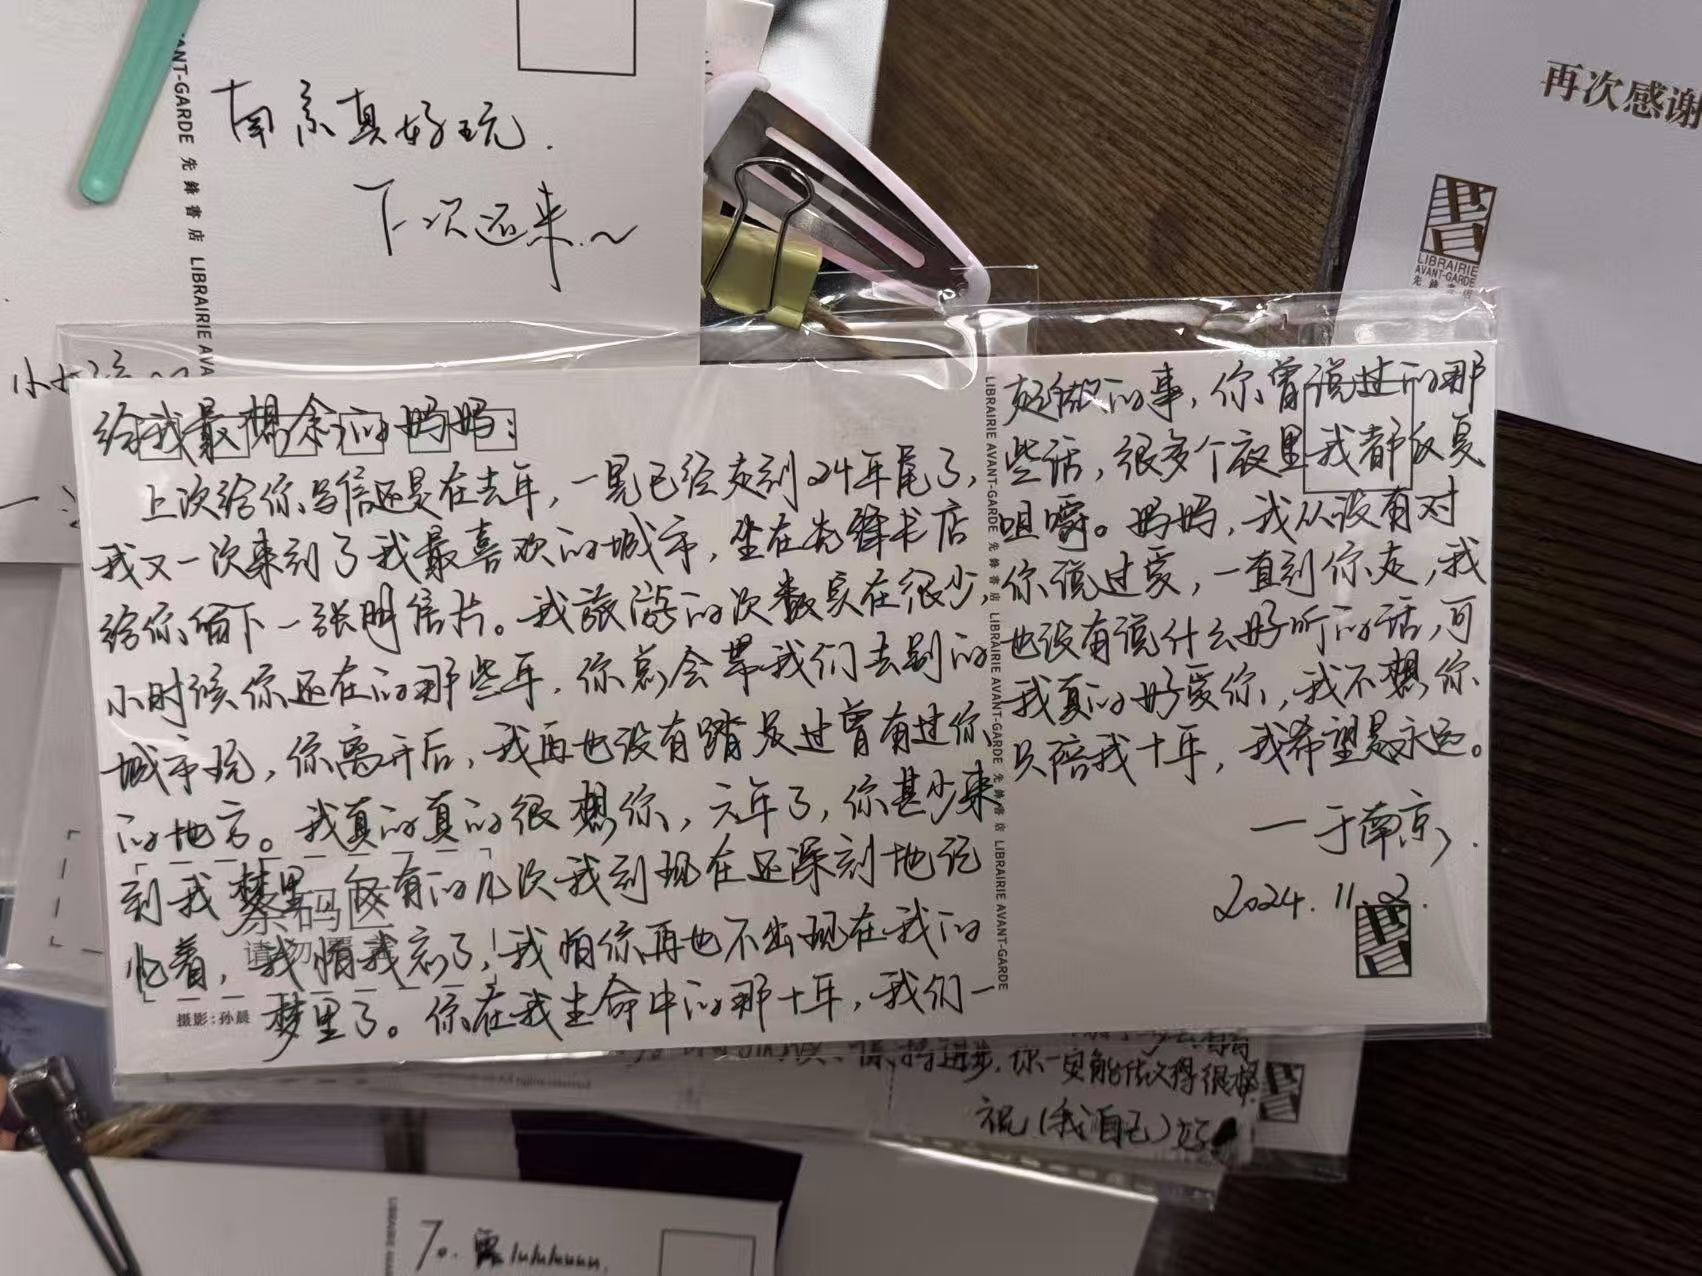 南京真好玩.
下次还来.~
ANT-GARDE 先鋒書店 LIBRAIRIE AVA
再次感谢
LIBRAIRIE
AVANT-GARDE
给我最想念的妈妈:
上次给你写信还是在去年,一晃已经走到24年尾了,
我又一次来到了我最喜欢的城市,坐在先锋书店
给你留下一张明信片。我旅游的次数实在很少,
小时候你还在的那些年,你总会带我们去别的
城市玩,你离开后,我再也没有踏足过曾有过你
的地方。我真的真的很想你,六年了,你甚少来
到我梦里,仅有的几次我到现在还深刻地记
忆着,我怕我忘了!我怕你再也不出现在我的
梦里了。你在我生命中的那十年,我们一
条码区
请勿覆盖
摄影:孙晨
LIBRAIRIE AVANT-GARDE 先鋒書店 LIBRAIRIE AVANT-GARDE 先鋒書店 LIBRAIRIE AVANT-GARDE
起做的事,你曾说过的那
些话,很多个夜里我都反复
咀嚼。妈妈,我从没有对
你说过爱,一直到你走,我
也没有说什么好听的话,可
我真的好爱你,我不想你
只陪我十年,我希望是永远。
一于南京,.
2024.11.2.
进步,你一定能做得很棒
祝(我自己)好
LIBRAIRIE
70.